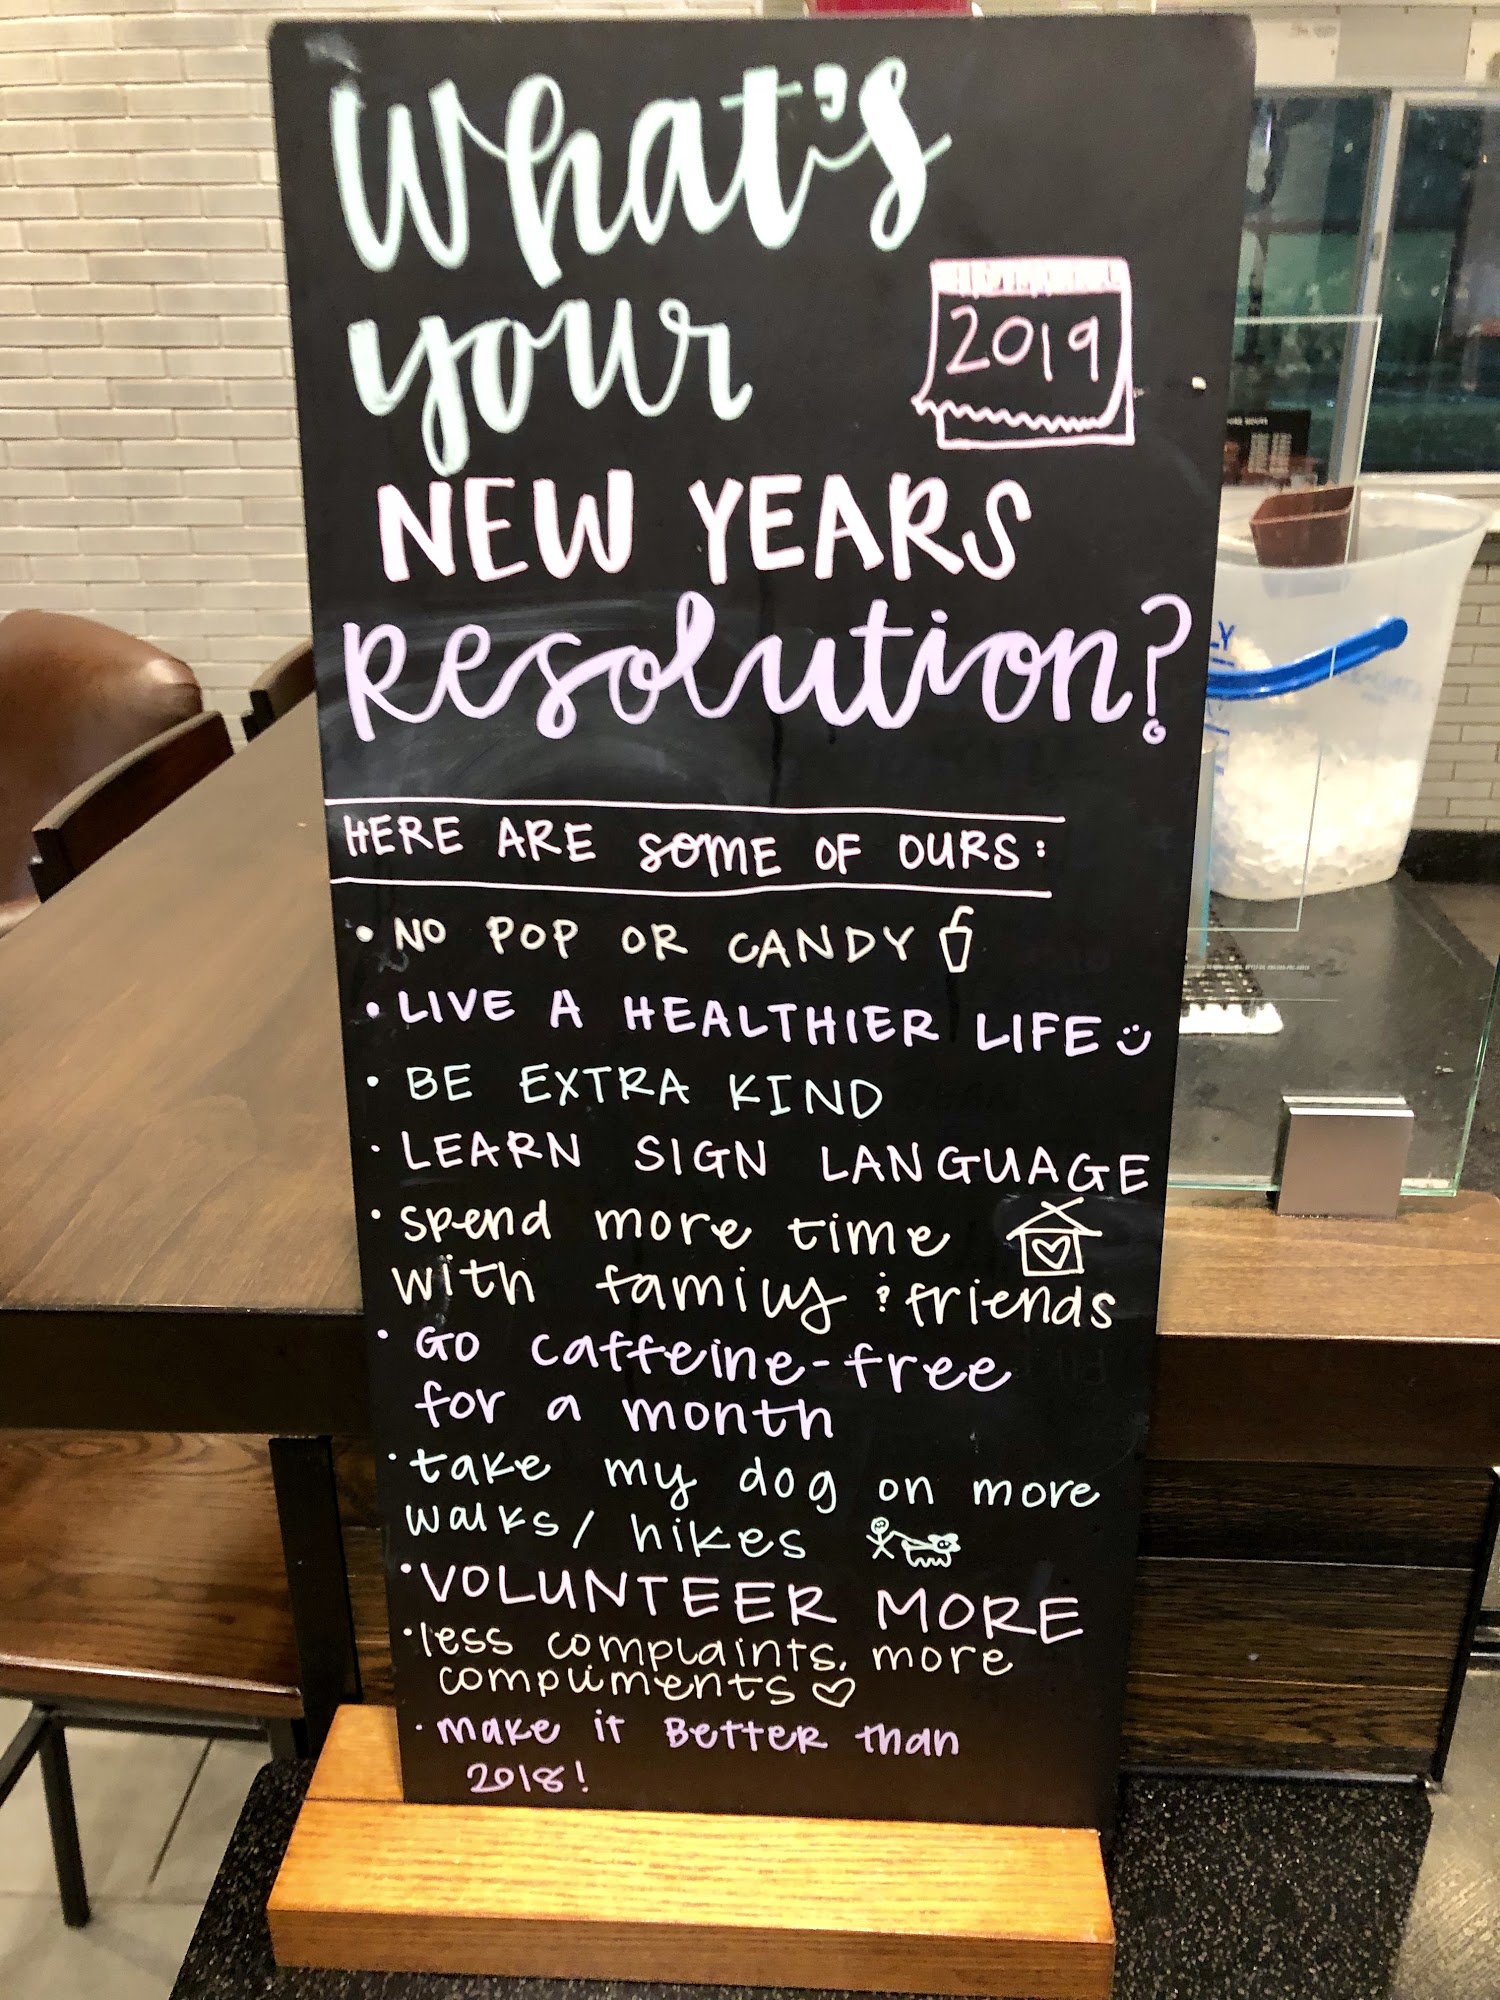 What's
your
2019
NEW YEARS
Resolution?
HERE ARE SOME OF OURS:
• NO POP OR CANDY
• LIVE A HEALTHIER LIFE
• BE EXTRA KIND
• LEARN SIGN LANGUAGE
• spend more time
with family & friends
• GO caffeine-free
for a month
• take my dog on more
walks/hikes
• VOLUNTEER MORE
• less complaints, more
compliments
• make it Better than
2018!